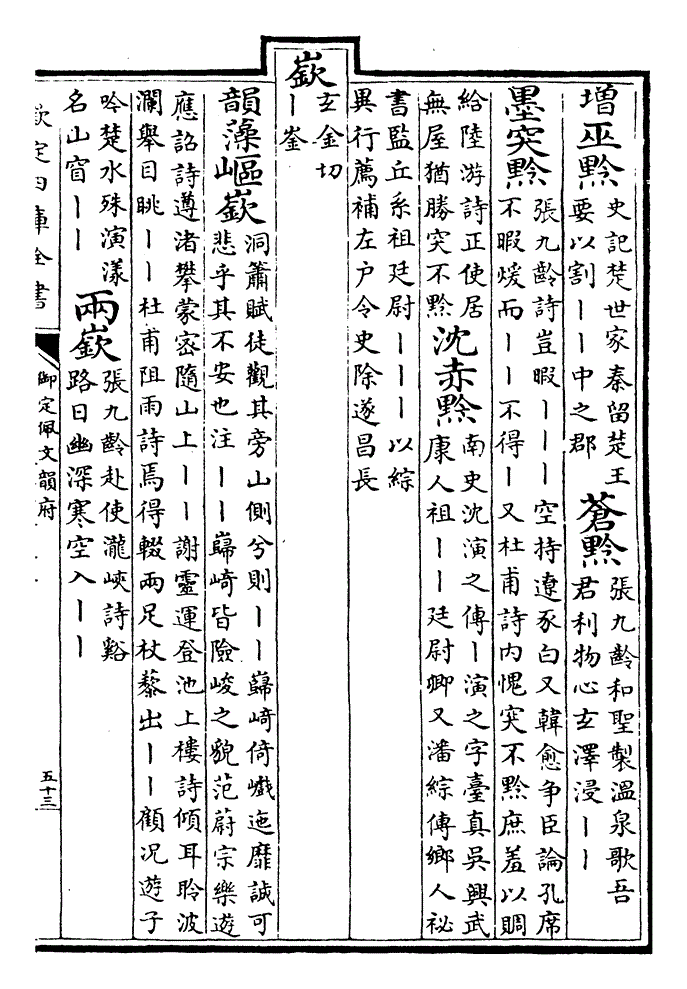 增巫黔
史記楚世家秦留楚王
要以割丨丨中之郡
蒼黔
張九齡和聖製溫泉歌吾
君利物心玄澤浸丨丨
墨突黔
張九齡詩豈暇丨丨丨空持遼豕白又韓愈争臣論孔席
不暇煖而丨丨不得丨又杜甫詩内愧突不黔庶羞以賙
給陸游詩正使居
無屋猶勝突不黔
沈赤黔
南史沈演之傳丨演之字臺真吳興武
康人祖丨丨廷尉卿又潘綜傳鄉人祕
書監丘系祖廷尉丨丨丨以綜
異行薦補左户令史除遂昌長
嶔
玄金切
丨崟
韻藻嶇嶔
洞簫賦徒觀其旁山側兮則丨丨巋崎倚巇迤靡誠可
悲乎其不安也注丨丨巋崎皆險峻之貌范蔚宗樂遊
應詔詩遵渚攀蒙密隨山上丨丨謝靈運登池上樓詩傾耳聆波
瀾舉目眺丨丨杜甫阻雨詩焉得輟兩足杖藜出丨丨顧况遊子
吟楚水殊演漾
名山窅丨丨
兩嶔
張九齡赴使瀧峽詩谿
路日幽深寒空入丨丨
欽定四庫全書
御定佩文韻府
五十三